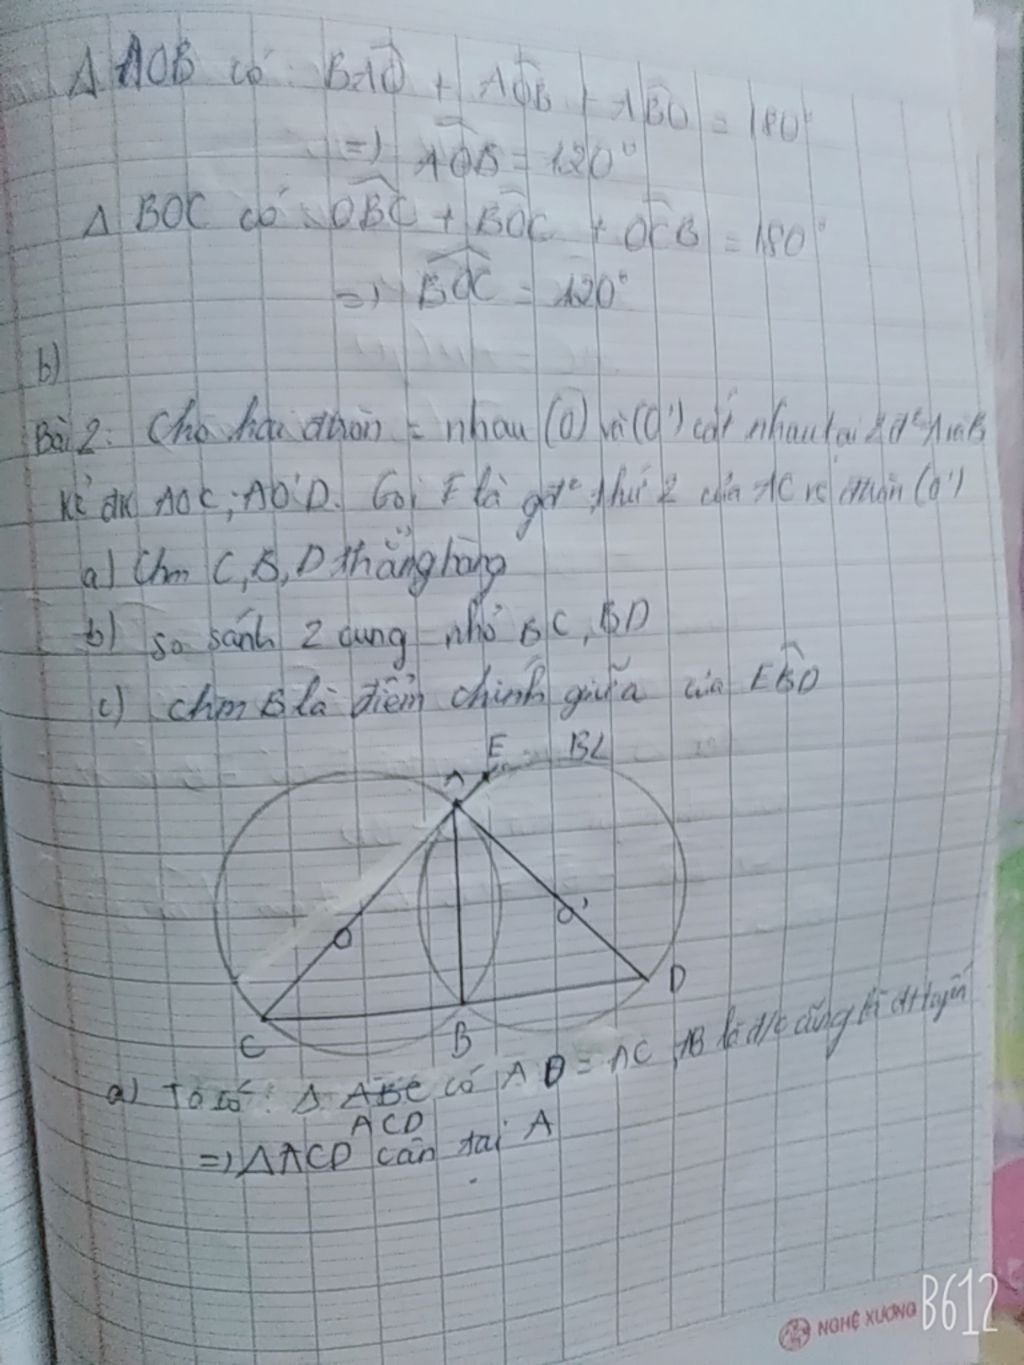 Δ AOB có: BAO + AOB + ABO = 180°
=) AOB = 120°
Δ BOC có OBC + BOC + OCB = 180°
=) BOC = 120°
b)
Bài 2: Cho hai đtròn = nhau (O) và (O') cắt nhau tại 2 đ² A và B
Kẻ đk AOC; AO'D. Gọi E là gđ² thứ 2 của AC và đtròn (O')
a) Chm C, B, D thẳng hàng
b) so sánh 2 cung nhỏ BC, BD
c) chm B là điểm chính giữa của EBD
E BC
A
O O'
D
C B
a) Ta có: Δ ABC có AD = AC AB là đ/c cũng là đttuyến
ACD
=) ΔACD cân tại A
NGHỆ XƯƠNG
B612